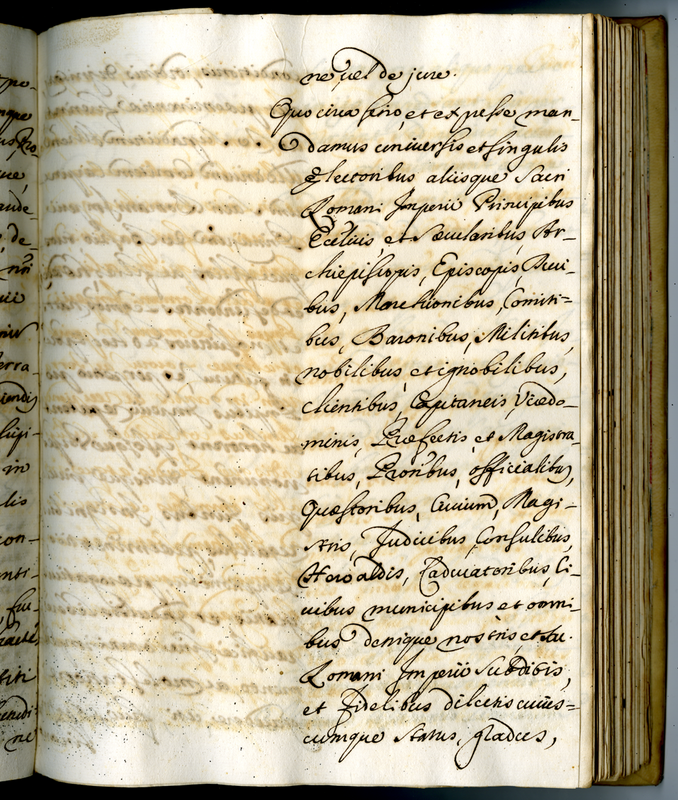 ne vel de jure.
Quo circa serio, et expresse man-
damus universis et singulis
Electoribus aliisque Sacri
Romani Imperii Principibus
Ecclius, et Sæcularibus, Ar-
chiepiscopis, Episcopis, Duci-
bus, Marchionibus, Comiti-
bus, Baronibus, Militibus,
nobilibus et ignobilibus,
clientibus, Capitaneis, Vicedo-
minis, Præfectis, et Magistra-
tibus, officialibus,
Quæstoribus, Civium, Magi-
stris, Judicibus, Consulibus,
Heroaldis, Caducatoribus, Ci-
vibus municipibus et omni-
bus denique nostris, et Su.
Romani Imperii Subditis,
et Fidelibus dilectis cuius-
cumque Status, gradus,